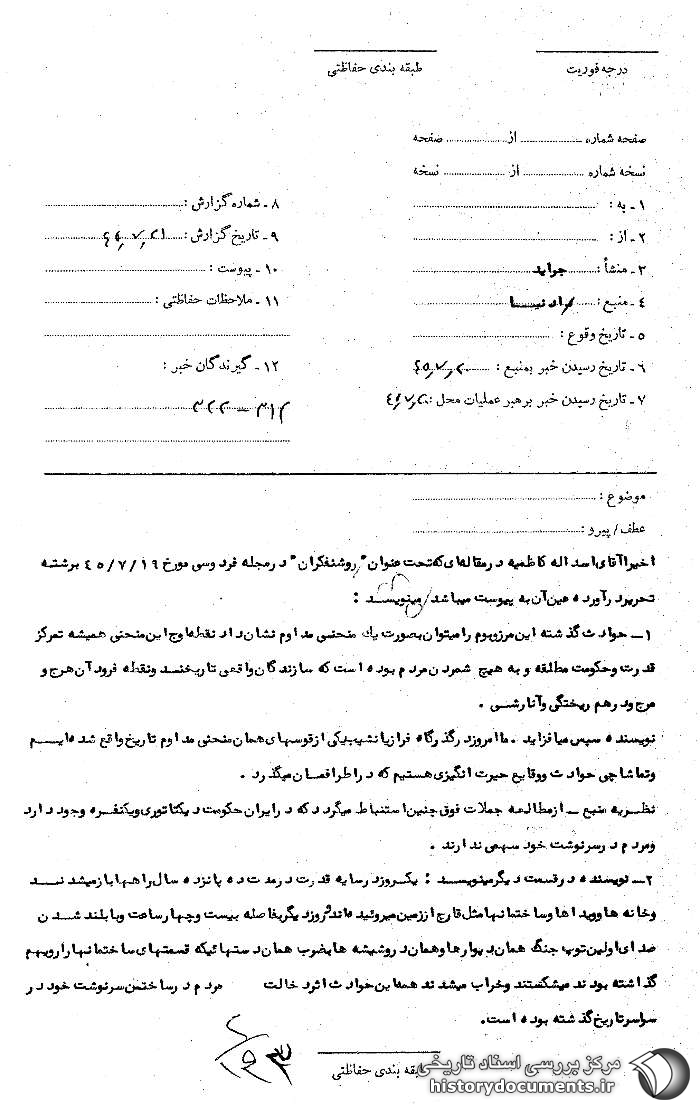 درجه فوریت
طبقه بندی حفاظتی
صفحه شماره ......... از ......... صفحه
نسخه شماره ......... از ......... نسخه
۱ - به :
۲ - از :
۳ - منشأ : جراید
۴ - منبع :
۵ - تاریخ وقوع :
۶ - تاریخ رسیدن خبر بمنبع : ۴۵٫۷٫۲۰
۷ - تاریخ رسیدن خبر برهبر عملیات محل : ۴۵٫۷٫۲۰
۸ - شماره گزارش :
۹ - تاریخ گزارش : ۴۵٫۷٫۲۱
۱۰ - پیوست :
۱۱ - ملاحظات حفاظتی :
۱۲ - گیرندگان خبر :
۳۱۲ – ۳۲۲
موضوع :
عطف / پیرو :
اخیرا آقای اسداله کاظمیه در مقاله‌ای که تحت عنوان "روشنفکران" در مجله فردوسی مورخ ۴۵/۷/۱۹ برشته
تحریر درآورده عین آن به پیوست میباشد / مینویسد :
۱- حوادث گذشته این مرزوبوم را میتوان بصورت یك منحنی مداوم نشان داد نقطه اوج این منحنی همیشه تمرکز
قدرت وحکومت مطلقه و به هیچ شمردن مردم بوده است که سازندگان واقعی تاریخند ونقطه فرود آن هرج و
مرج ودرهم ریختگی وآنارشی .
نویسنده سپس میافزاید . ما امروز در گذرگاه فراز یا نشیب یکی از قوسهای همان منحنی مداوم تاریخ واقع شده‌ایم
وتماشاچی حوادث ووقایع حیرت انگیزی هستیم که در اطرافمان میگذرد .
نظریه منبع - از مطالعه جملات فوق چنین استنباط میگردد که در ایران حکومت دیکتاتوری ویکنفره وجود دارد
ومردم در سرنوشت خود سهمی ندارند .
۲- نویسنده در قسمت دیگر مینویسد : یکروز در سایه قدرت در مدت ده پانزده سال راهها باز میشدند
وخانه ها وویداها وساختمانها مثل قارچ از زمین میروئیدهاند وروز دیگر بفاصله بیست وچهارساعت وبا بلند شدن
صدای اولین توپ جنگ همان دیوارها وهمان در وشیشه ها بضرب همان دستهائیکه قسمتهای ساختمانها را رویهم
گذاشته بودند میشکستند وخراب میشدند همه این حوادث اثر دخالت مردم در ساختمن سرنوشت خود در
سراسر تاریخ گذشته بوده است.
طبقه بندی حفاظتی
مرکز بررسی اسناد تاریخی
historydocuments.ir